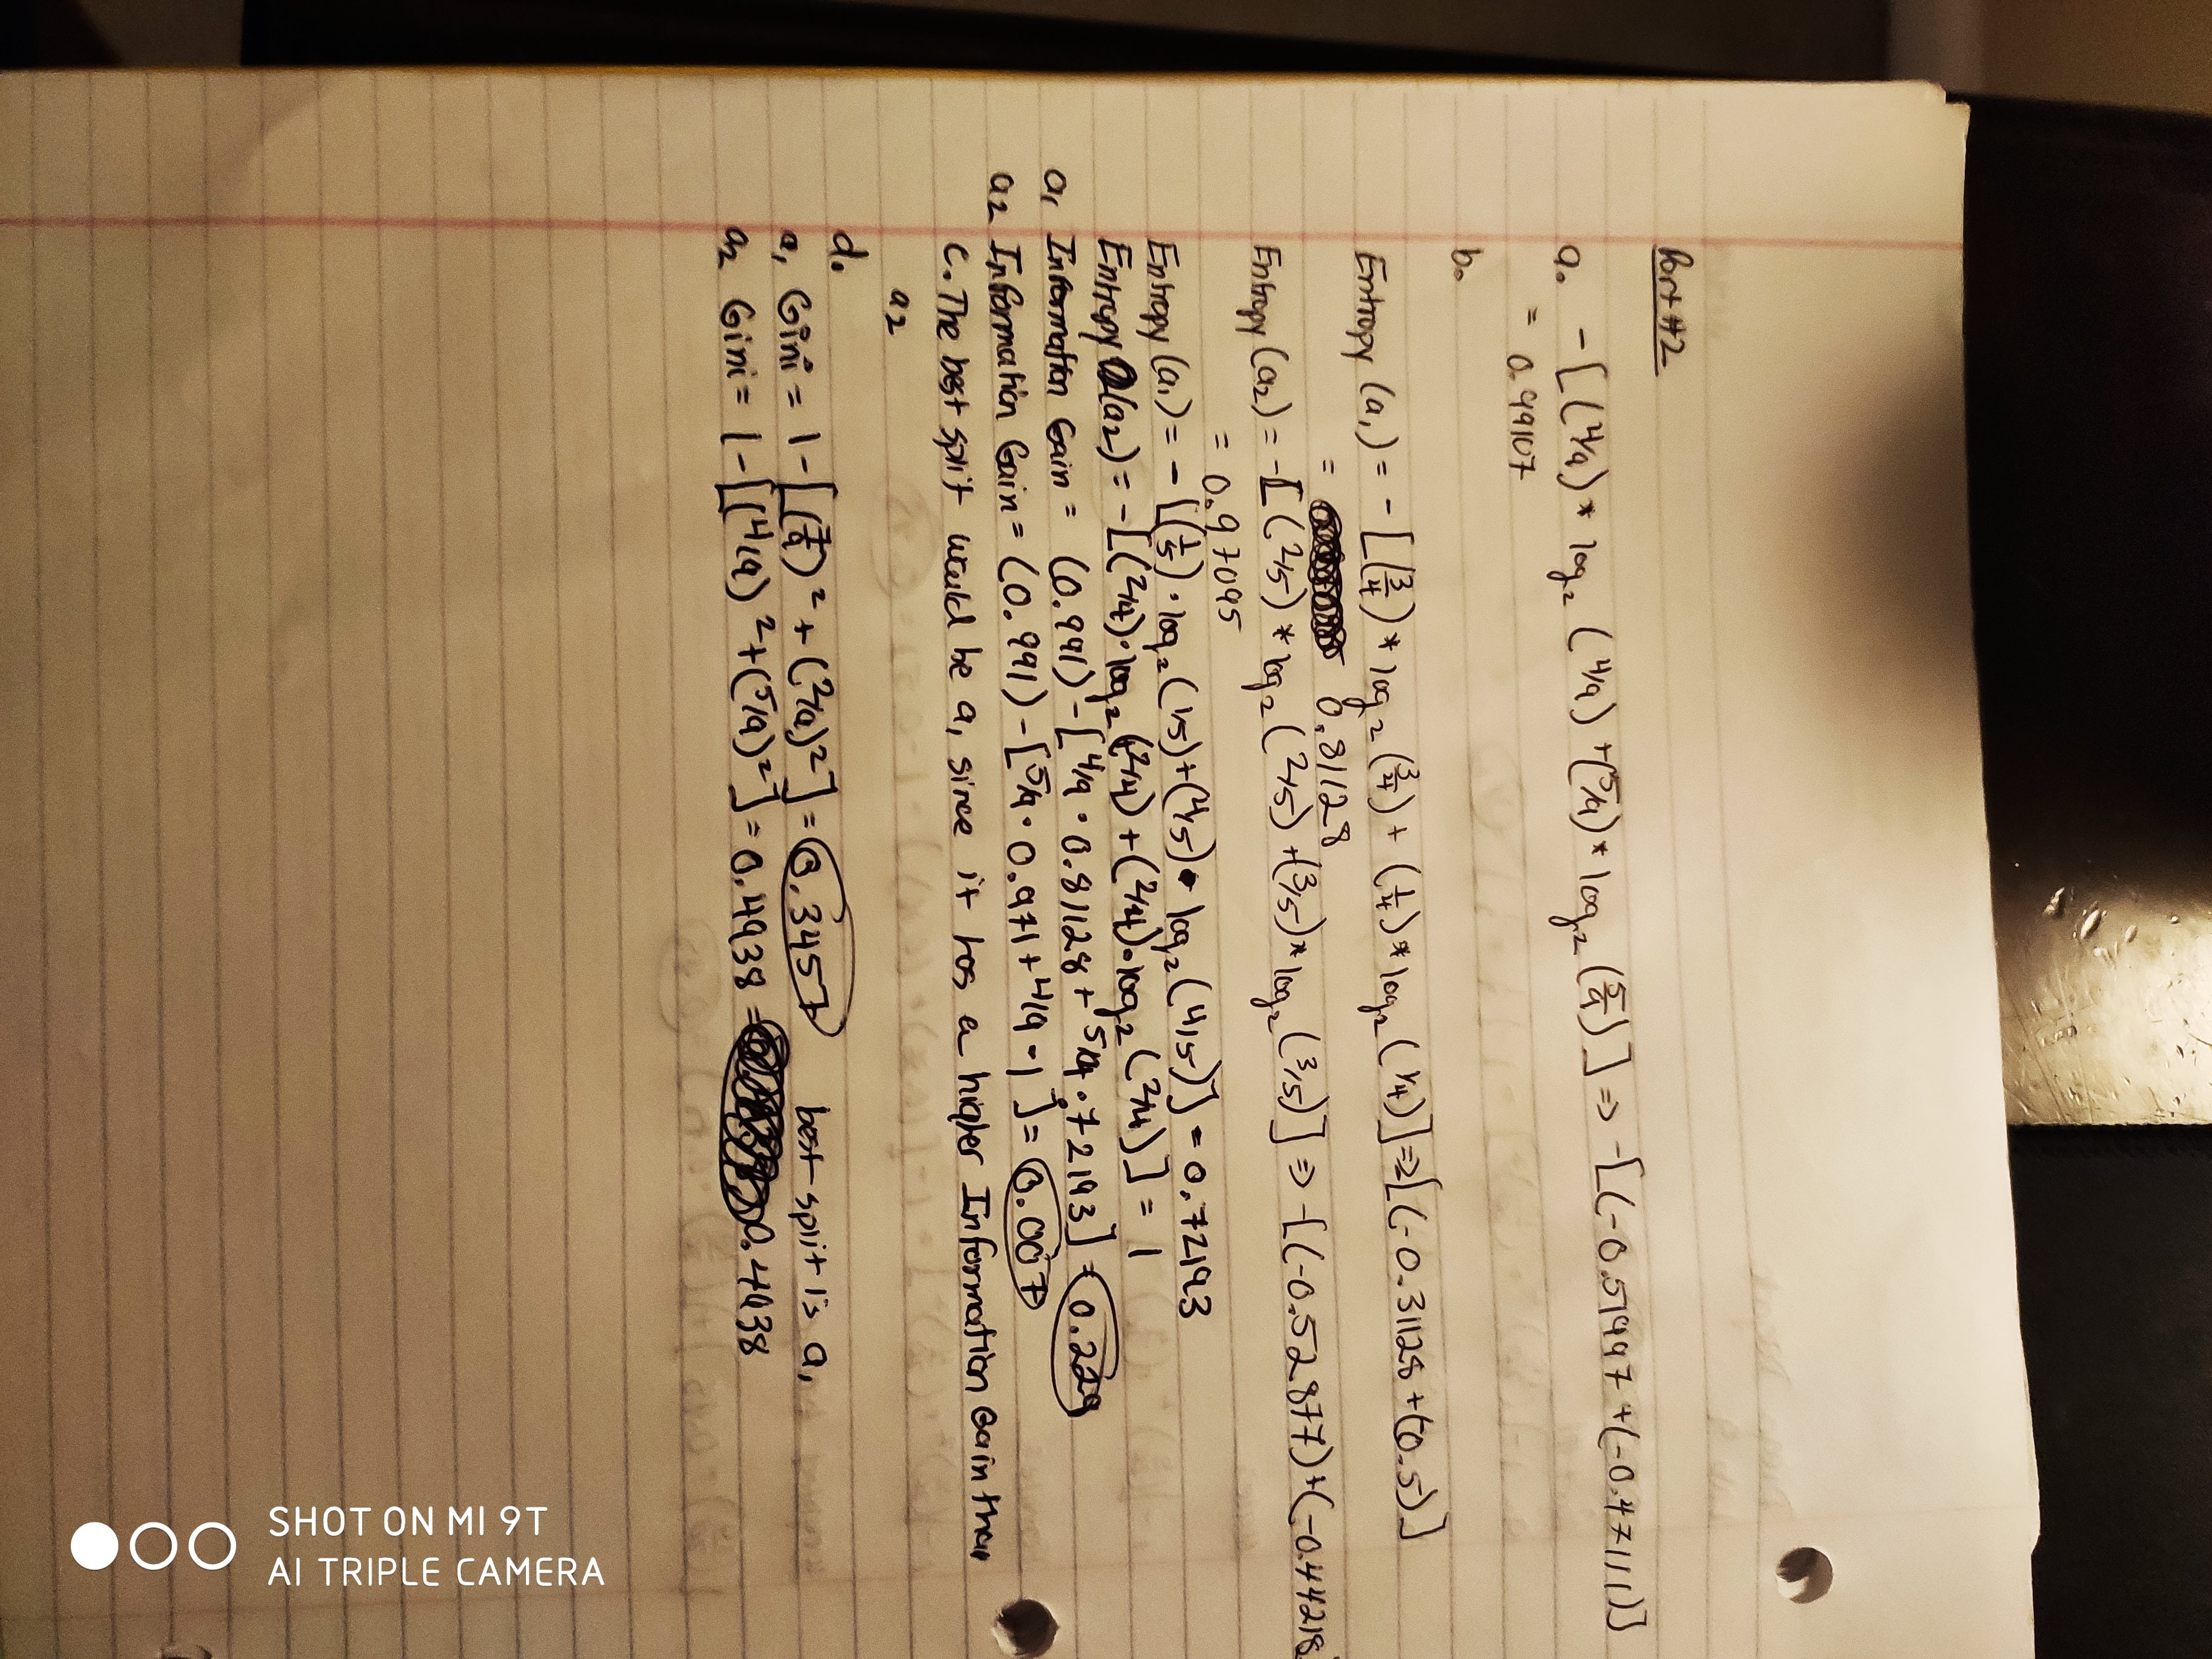 Part #2
a. -[(4/9) * log₂ (4/9) + (5/9) * log₂ (5/9)] => -[(-0.51997 + (-0.47111)]
= 0.99107
b.
Entropy (a₁) = -[(3/4) * log₂ (3/4) + (1/4) * log₂ (1/4)] => -[(-0.31128 + (-0.5)]
= 0.81128
Entropy (a₂) = -[(2/5) * log₂ (2/5) + (3/5) * log₂ (3/5)] => -[(-0.52877) + (-0.44218
= 0.97095
Entropy (a₁) = -[(1/5) · log₂ (1/5) + (4/5) · log₂ (4/5)] = 0.72193
Entropy (a₂) = -[(2/4) · log₂ (2/4) + (2/4) · log₂ (2/4)] = 1
a₁ Information Gain = (0.991) - [4/9 · 0.81128 + 5/9 · .72193] = 0.229
a₂ Information Gain = (0.991) - [5/9 · 0.971 + 4/9 · 1] = 0.007
c. The best split would be a₁ since it has a higher Information Gain than
a₂
d.
a₁ Gini = 1 - [(7/9)² + (2/9)²] = 0.3457 best split is a₁
a₂ Gini = 1 - [(4/9)² + (5/9)²] = 0.4938 = 0.4938
SHOT ON MI 9T
AI TRIPLE CAMERA